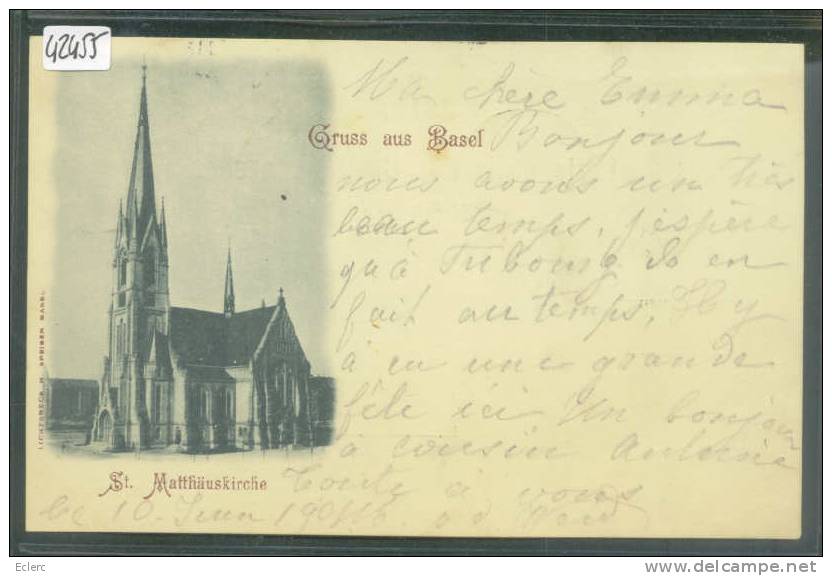 42455
Ma chère Emma
Gruss aus Basel
Bonjour
nous avons un très
beau temps, j'espère
qu'à Fribourg
fait au temps. Il y
a eu une grande
fête ici Un bonjour
à cousin Antonie
LICHTDRUCK M. SPEISER BASEL
St. Matthäuskirche
Toute à vous
le 10. Juin
Eclerc
www.delcampe.net